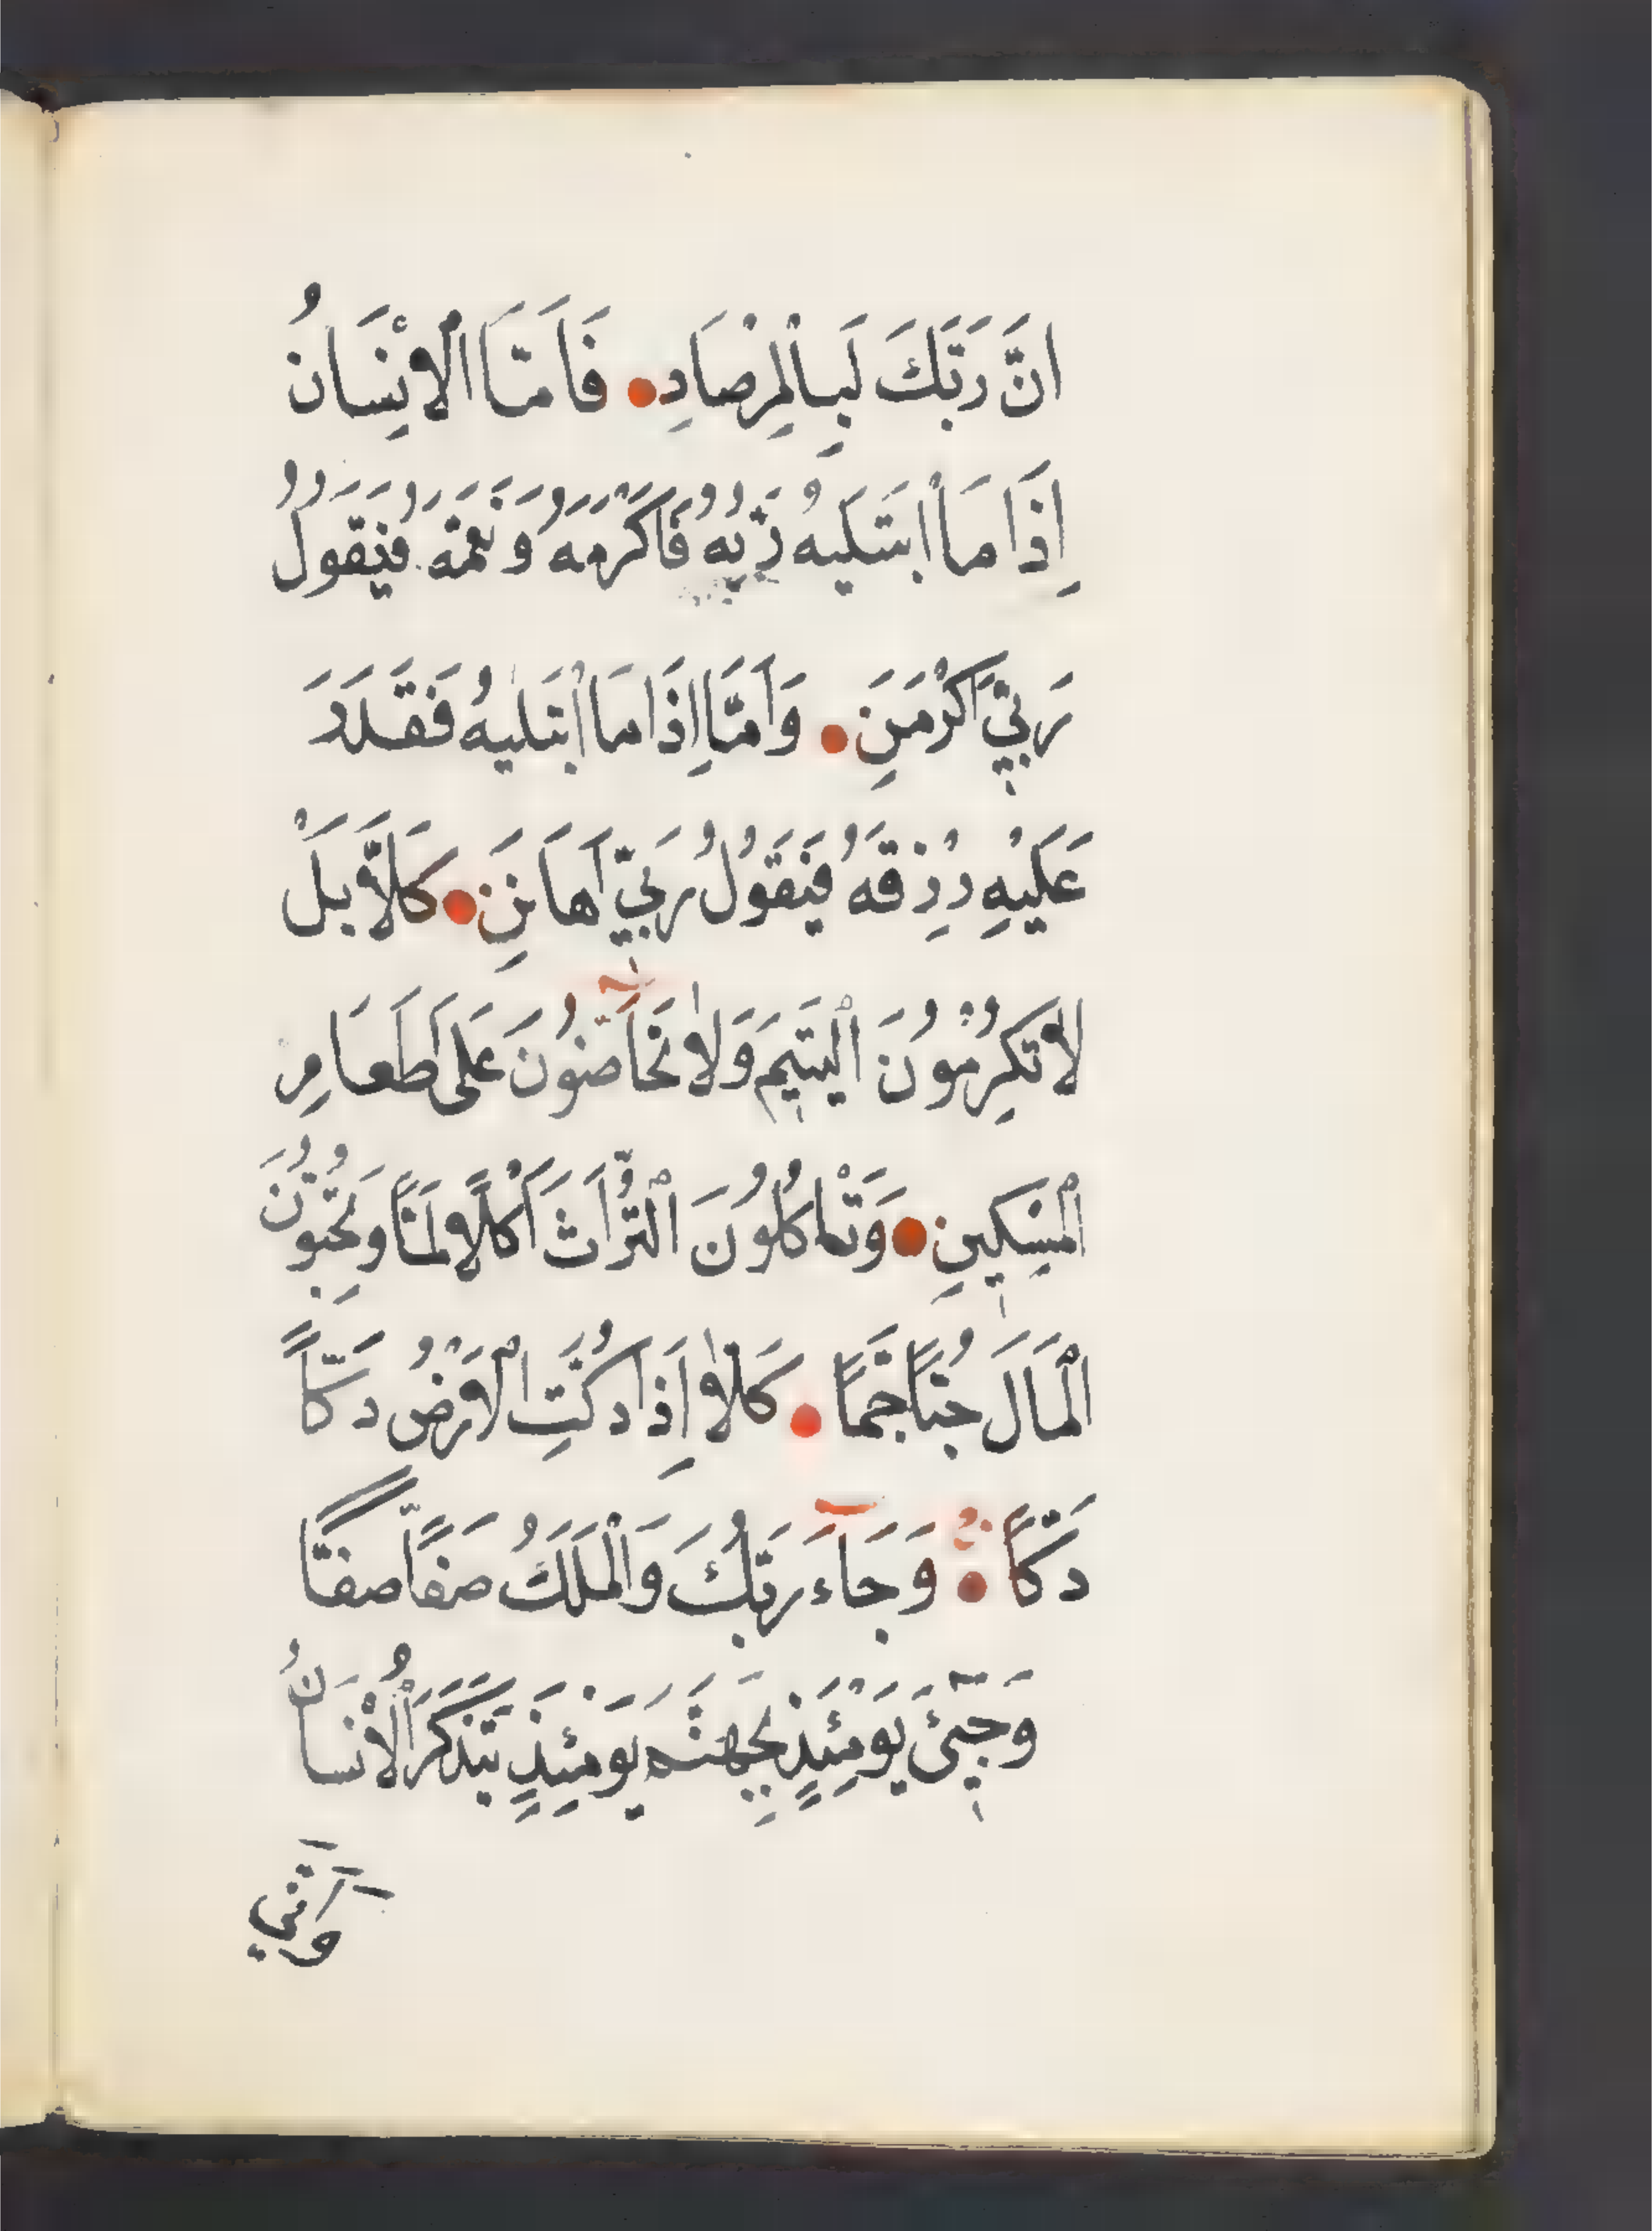 اِنَّ رَبَّكَ لَبِالْمِرْصَادِ فَاَمَّا الْاِنْسَانُ
اِذَا مَا ابْتَلَيهُ رَبُّهُ فَاَكْرَمَهُ وَنَعَّمَهُ فَيَقُولُ
رَبِّي اَكْرَمَنِ وَاَمَّا اِذَا مَا ابْتَلَيهُ فَقَدَرَ
عَلَيْهِ رِزْقَهُ فَيَقُولُ رَبِّي اَهَانَنِ كَلَّا بَلْ
لَا تُكْرِمُونَ الْيَتِيمَ وَلَا تَحَاضُّونَ عَلَى طَعَامِ
الْمِسْكِينِ وَتَاْكُلُونَ التُّرَاثَ اَكْلًا لَمًّا وَتُحِبُّونَ
الْمَالَ حُبًّا جَمًّا كَلَّا اِذَا دُكَّتِ الْاَرْضُ دَكًّا
دَكًّا وَجَاءَ رَبُّكَ وَالْمَلَكُ صَفًّا صَفًّا
وَجِيئَ يَوْمَئِذٍ بِجَهَنَّمَ يَوْمَئِذٍ يَتَذَكَّرُ الْاِنْسَانُ
وَاَنَّي